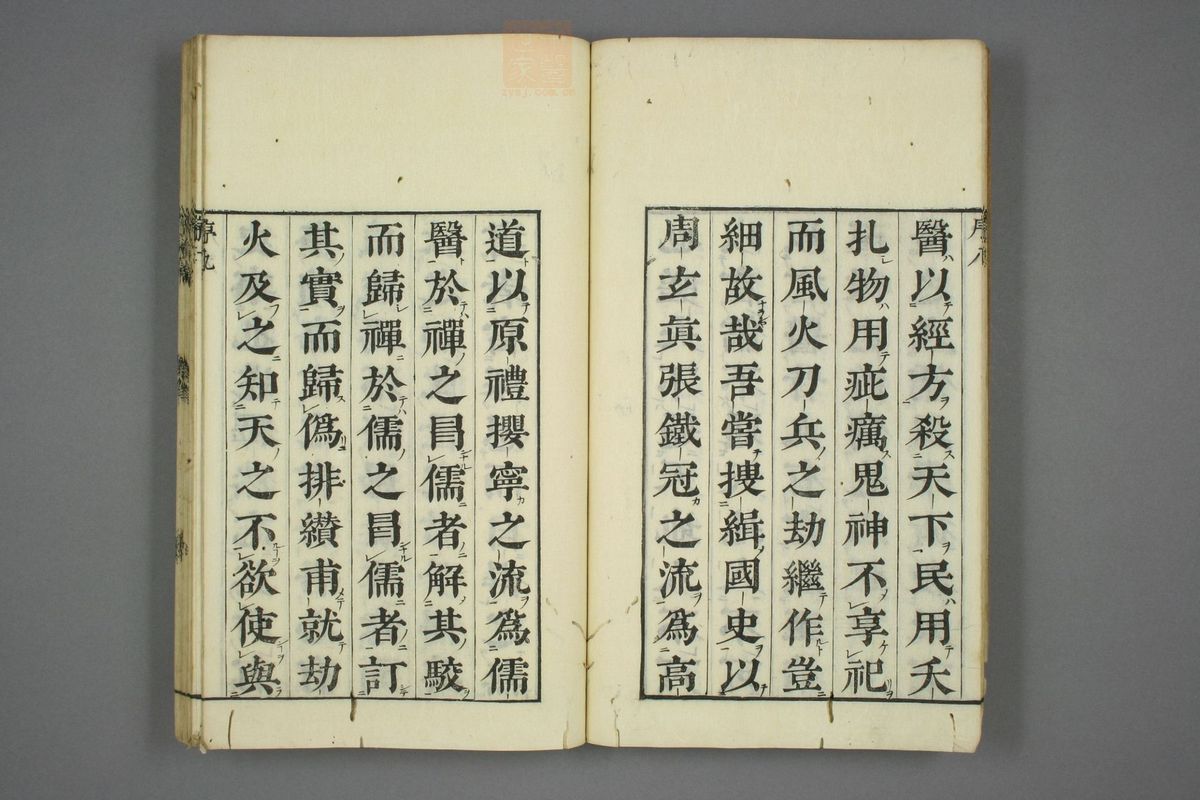 醫以經方殺天下民用夭
扎物用疵癘鬼神不享祀
而風火刀兵之劫繼作豈
細故哉吾嘗搜緝國史以
周玄眞張鐵冠之流爲高
道以原禮攖寧之流爲儒
醫於禪之冐儒者解其駮
而歸禪於儒之冐儒者訂
其實而歸僞排纘甫就劫
火及之知天之不欲使與